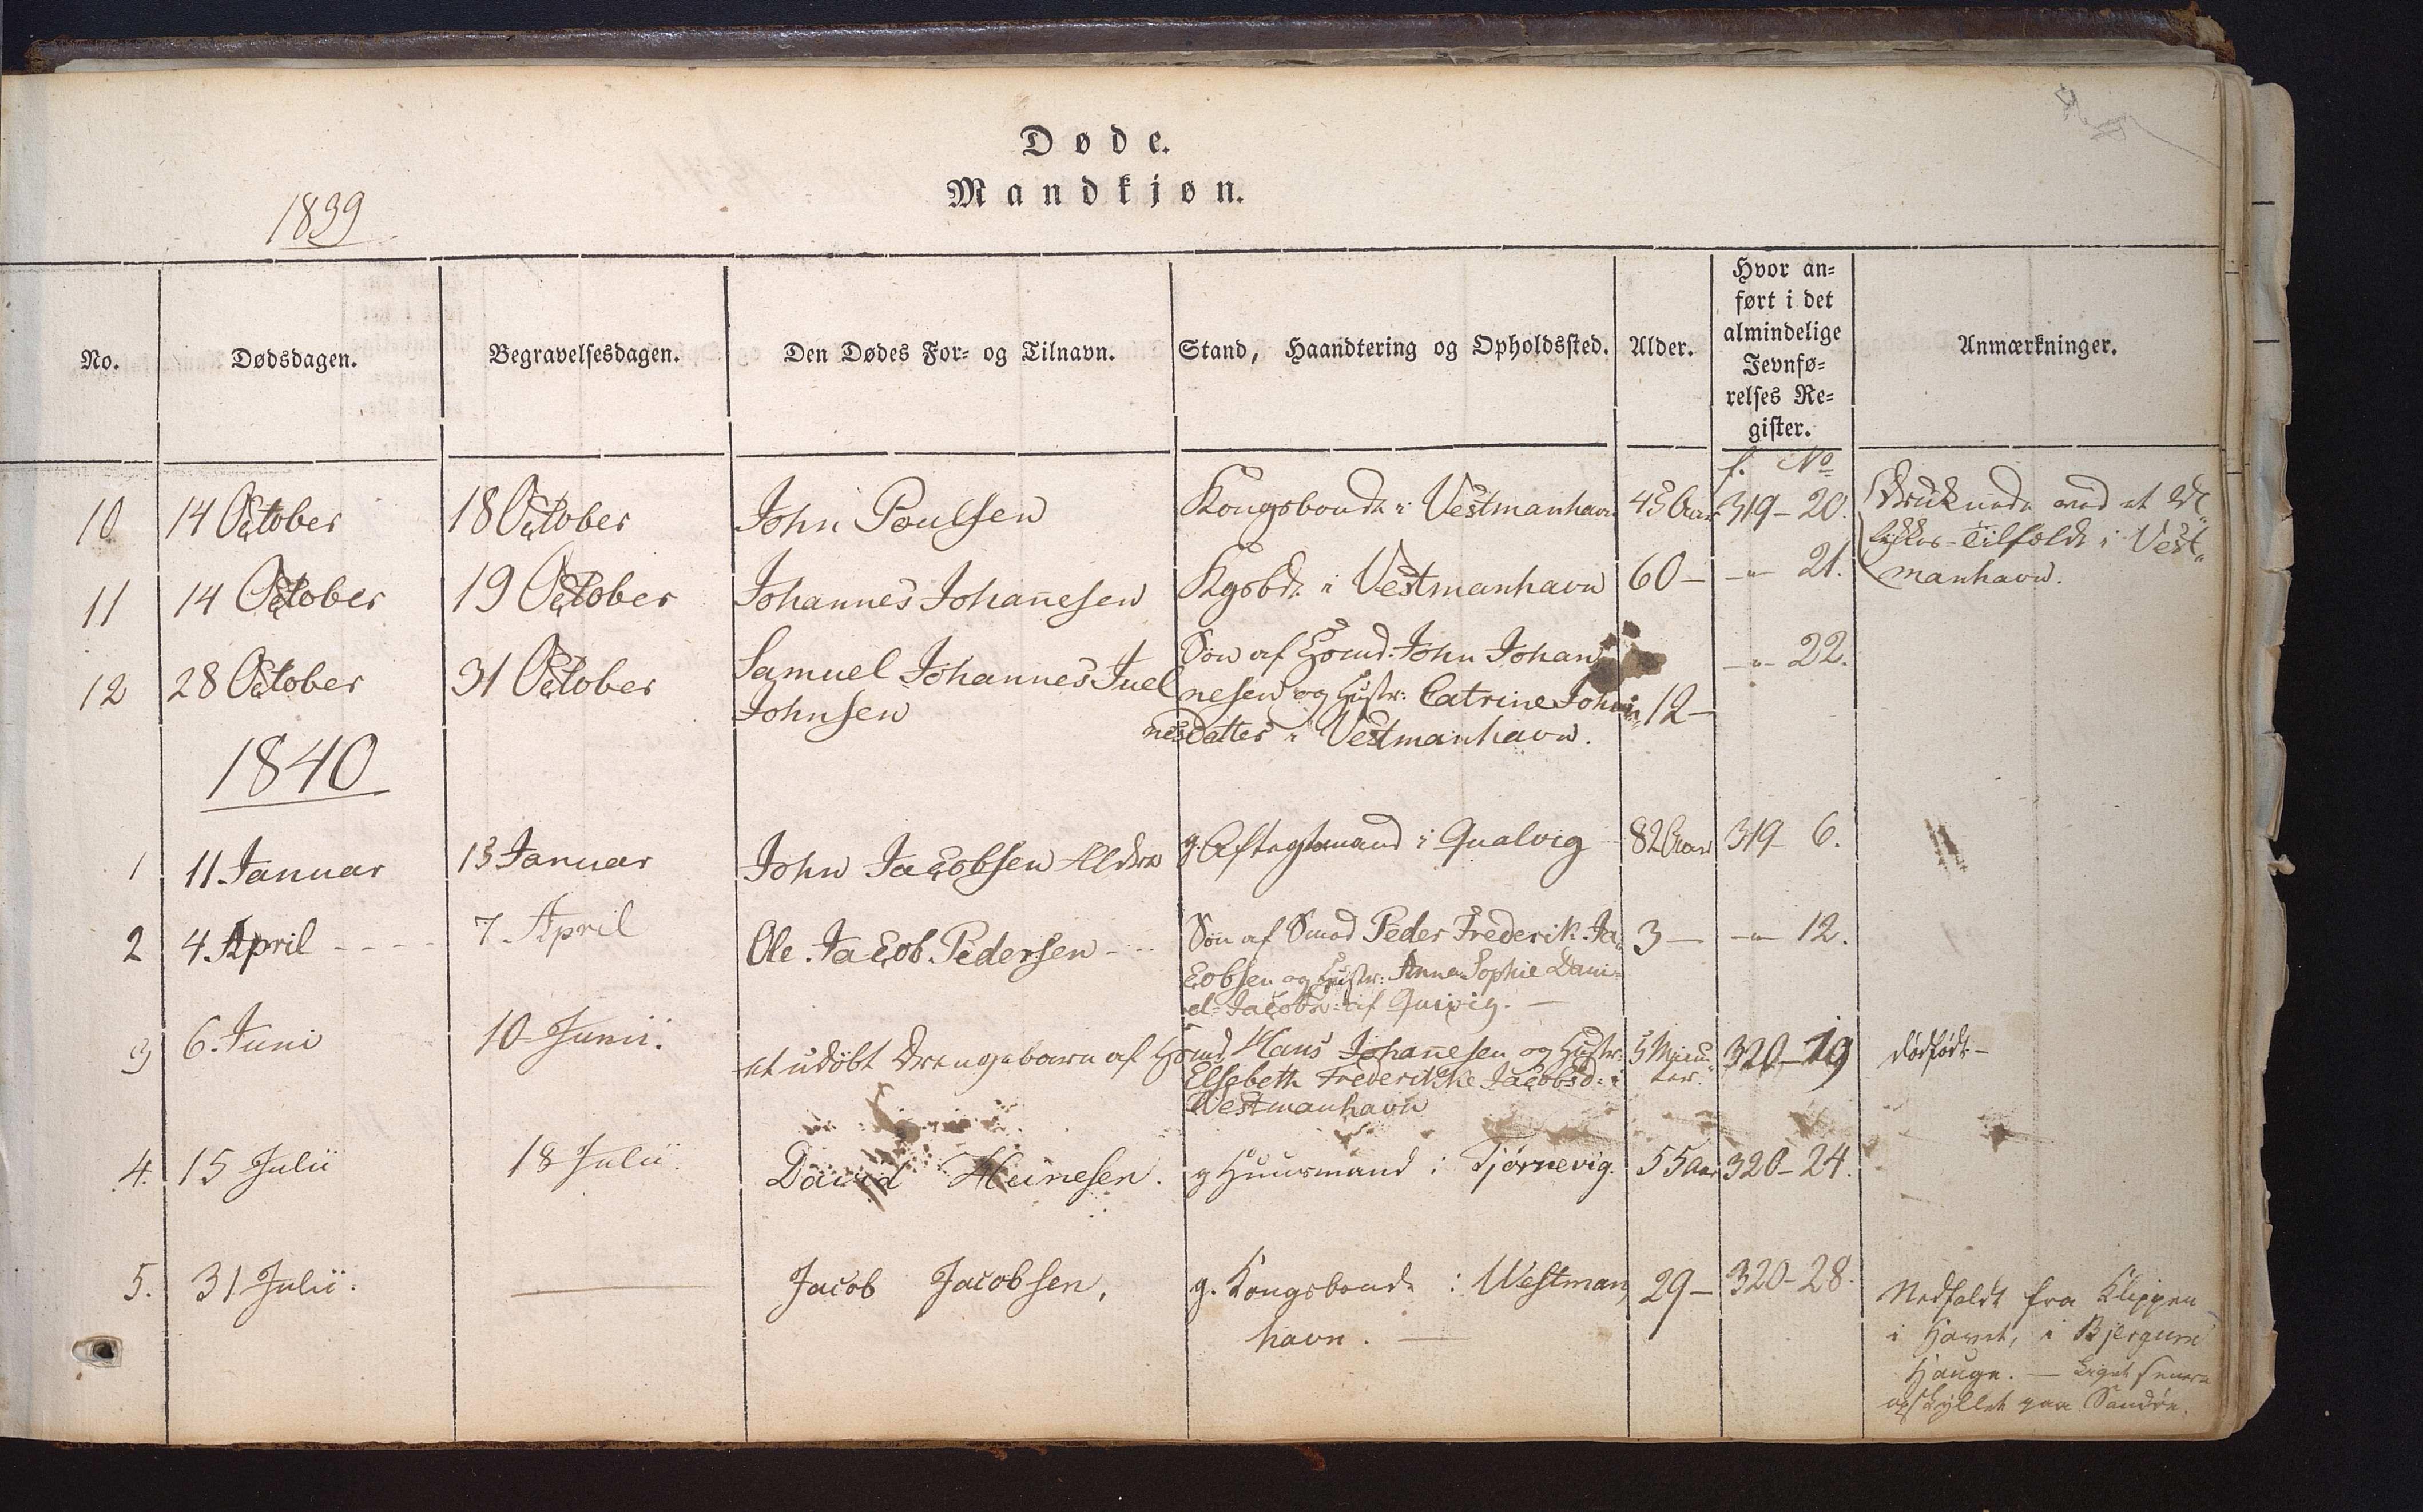 Døde.
Mandkjøn.
1839
No. Dødsdagen. Begravelsesdagen. Den Dødes For- og Tilnavn. Stand, Haandtering og Opholdssted. Alder. Hvor an-
ført i det
almindelige
Jevnfø-
relses Re-
gister. Anmærkninger.
f. No
10 14 October 18 October John Poulsen Kongsbonde i Vestmanhavn 43 Aar 319 - 20. Druknede ved et U„
lykkes-Tilfælde i Vest„
manhavn.
11 14 October 19 October Johannes Johan̅esen Kgsbde i Vestmanhavn 60 - -"- 21.
12 28 October 31 October Samuel Johannes Juel
Johnsen
Søn af Hsmd. John Johan„
nesen og Hustr: Catrine Johan„
nesdatter i Vestmanhavn.
12 - -"- 22.
1840
1 11 Januar 13 Januar John Jacobsen Ældre g. Aftægtsmand i Qualvig 82 Aar 319 - 6.
2 4. April - - - - 7. April Ole Jacob Pedersen - - Søn af Smed Peder Frederik Ja„
cobsen og Hustr: Anna Sophie Dani„
el-Jacobs: af Qvivig. -
3 - -"- 12.
3 6. Juni 10 Junii. et udøbt Drengebarn af Hsmd. Hans Johan̅esen og Hustr:
Elsebeth Frederikke Jacobsd: i
Westmanhavn
5 Minu„
ter. 320 - 19 dødfødt -
4. 15 Julii 18 Julii. David Heinesen. g Huusmand i Tjørnevig. 55 Aar 320 - 24.
5. 31 Julii. — Jacob Jacobsen, g. Kongsbonde i Westman„
havn. —
29 - 320 - 28. Nedfaldt fra Klippen
i Havet, i Bjergum
Hauge. — Liget senere
opskyllet paa Sandøe.